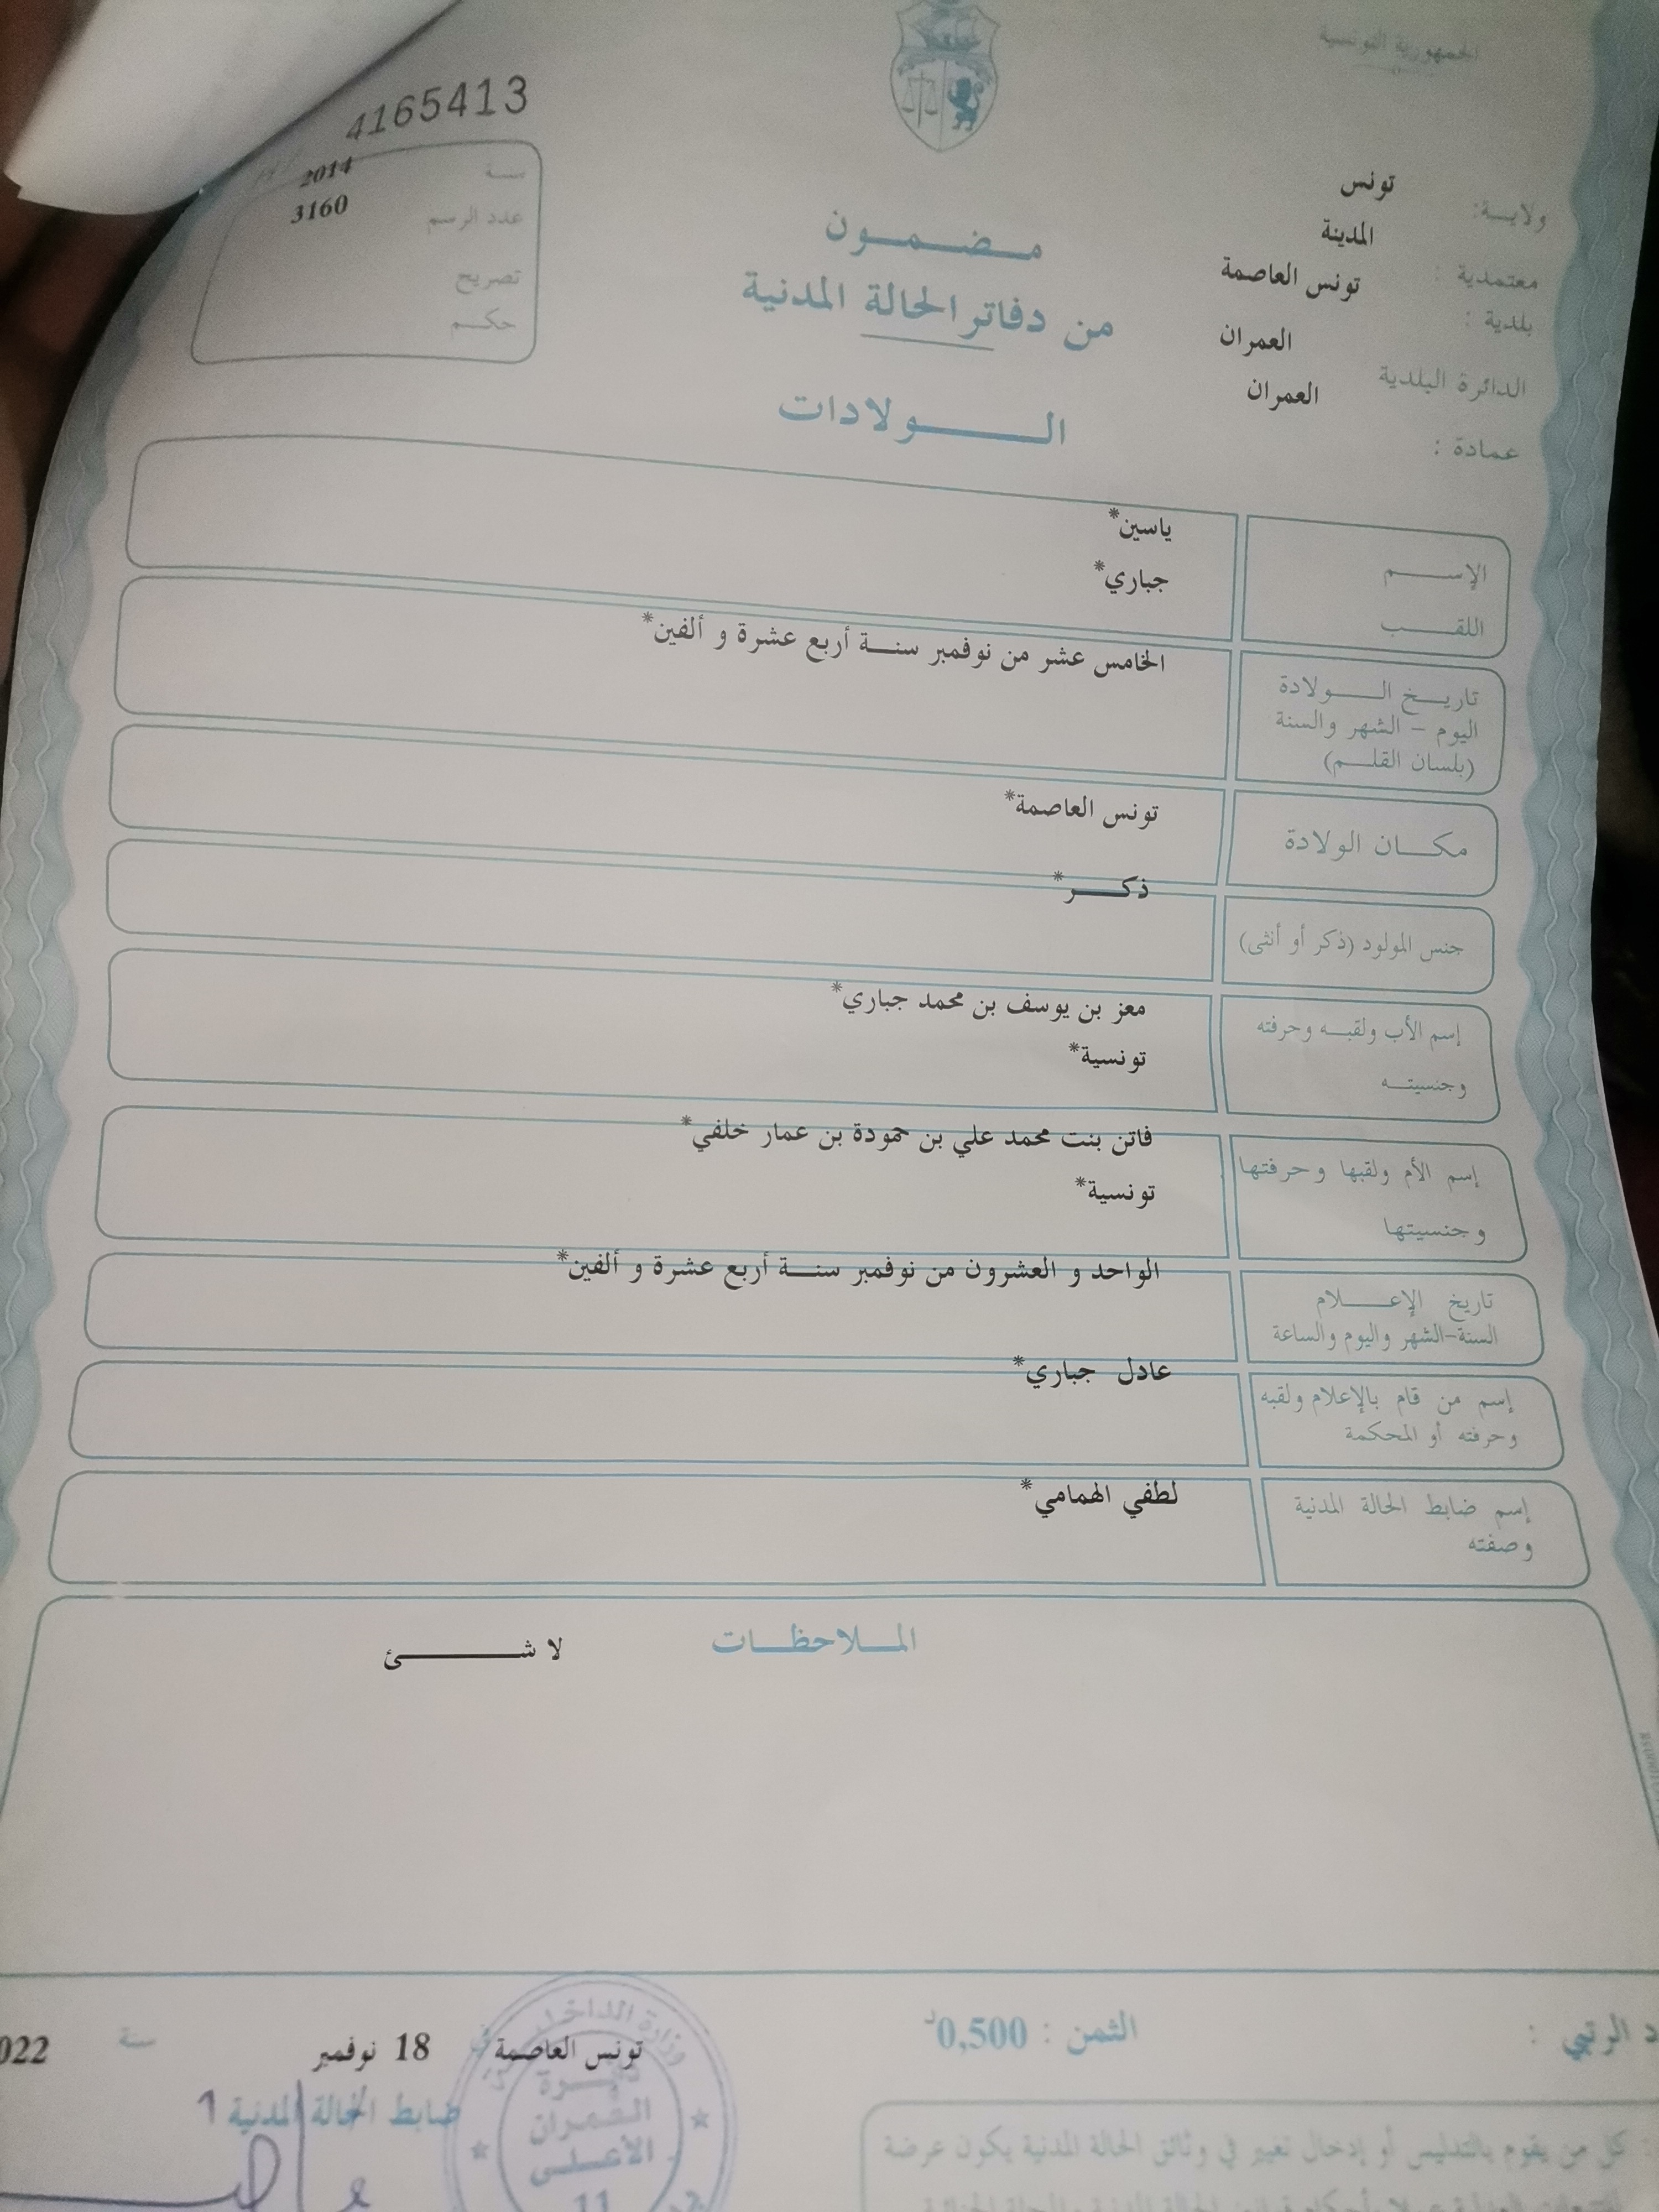 الجمهورية التونسية
4165413
سنة 2014
عدد الرسم 3160
تصريح
حكم
ولاية: تونس
معتمدية : المدينة
بلدية : تونس العاصمة
الدائرة البلدية العمران
عمادة : العمران
مضمون
من دفاتر الحالة المدنية
الولادات
الإسم ياسين*
اللقب جباري*
تاريخ الولادة
اليوم - الشهر والسنة
(بلسان القلم)
الخامس عشر من نوفمبر سنة أربع عشرة و ألفين*
مكان الولادة تونس العاصمة*
جنس المولود (ذكر أو أنثى) ذكر*
إسم الأب ولقبه وحرفته
وجنسيته
معز بن يوسف بن محمد جباري*
تونسية*
إسم الأم ولقبها وحرفتها
وجنسيتها
فاتن بنت محمد علي بن حمودة بن عمار خلفي*
تونسية*
تاريخ الإعلام
السنة-الشهر واليوم والساعة
الواحد و العشرون من نوفمبر سنة أربع عشرة و ألفين*
إسم من قام بالإعلام ولقبه
وحرفته أو المحكمة
عادل جباري*
إسم ضابط الحالة المدنية
وصفته
لطفي الهمامي*
الملاحظات
لا شئ
الرتبي :
الثمن : 0,500د
تونس العاصمة في 18 نوفمبر سنة 022
ضابط الحالة المدنية
وزارة الداخلية
دائرة
العمران
الأعلى
11
كل من يقوم بالتدليس أو إدخال تغيير في وثائق الحالة المدنية يكون عرضة